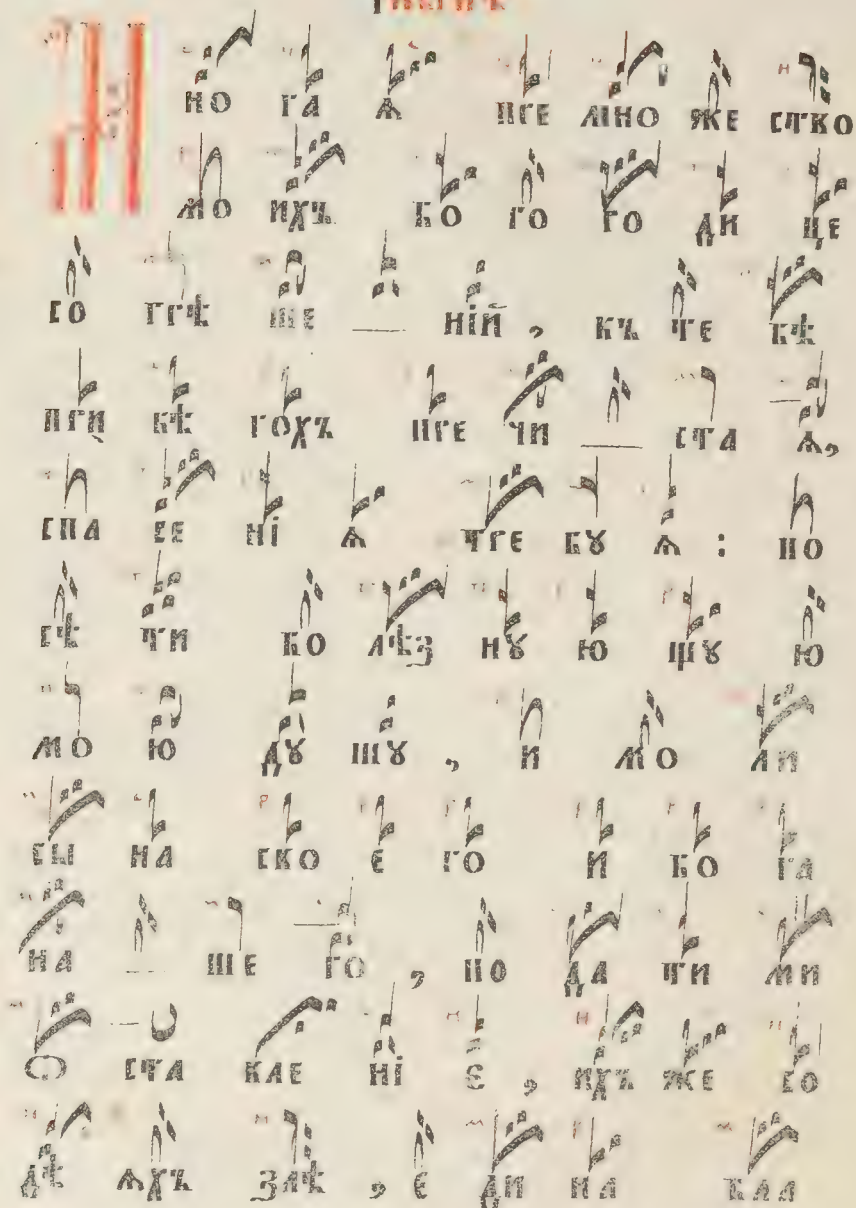 М но га ѧ пре мно же ство
мо ихъ бо го ро ди це
со грѣ ше — нїй , къ те бѣ
при бѣ гохъ пре чи — ста ѧ,
спа се нї ѧ тре бꙋ ѧ : по
сѣ ти бо лѣз нꙋ ю щꙋ ю
мо ю дꙋ шꙋ , и мо ли
сы на сво е го и бо га
на — ше го , по да ти ми
ѡ ста вле нї е , ихъ же со
дѣ ѧхъ злѣ , е ди на бла